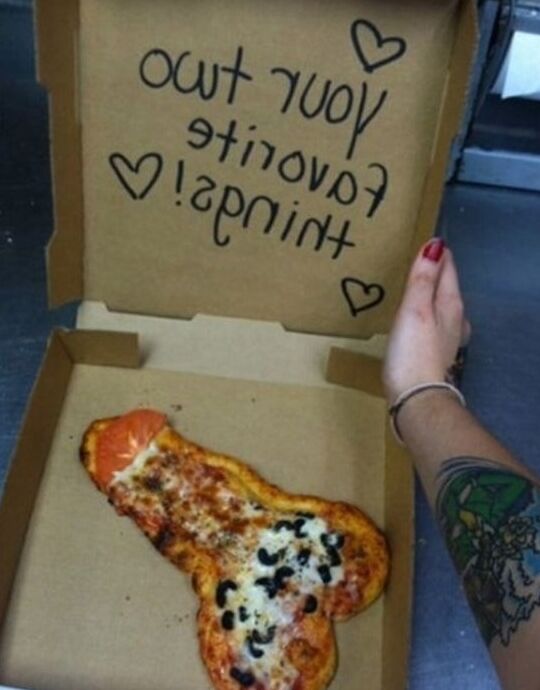 your two
favorite
things!